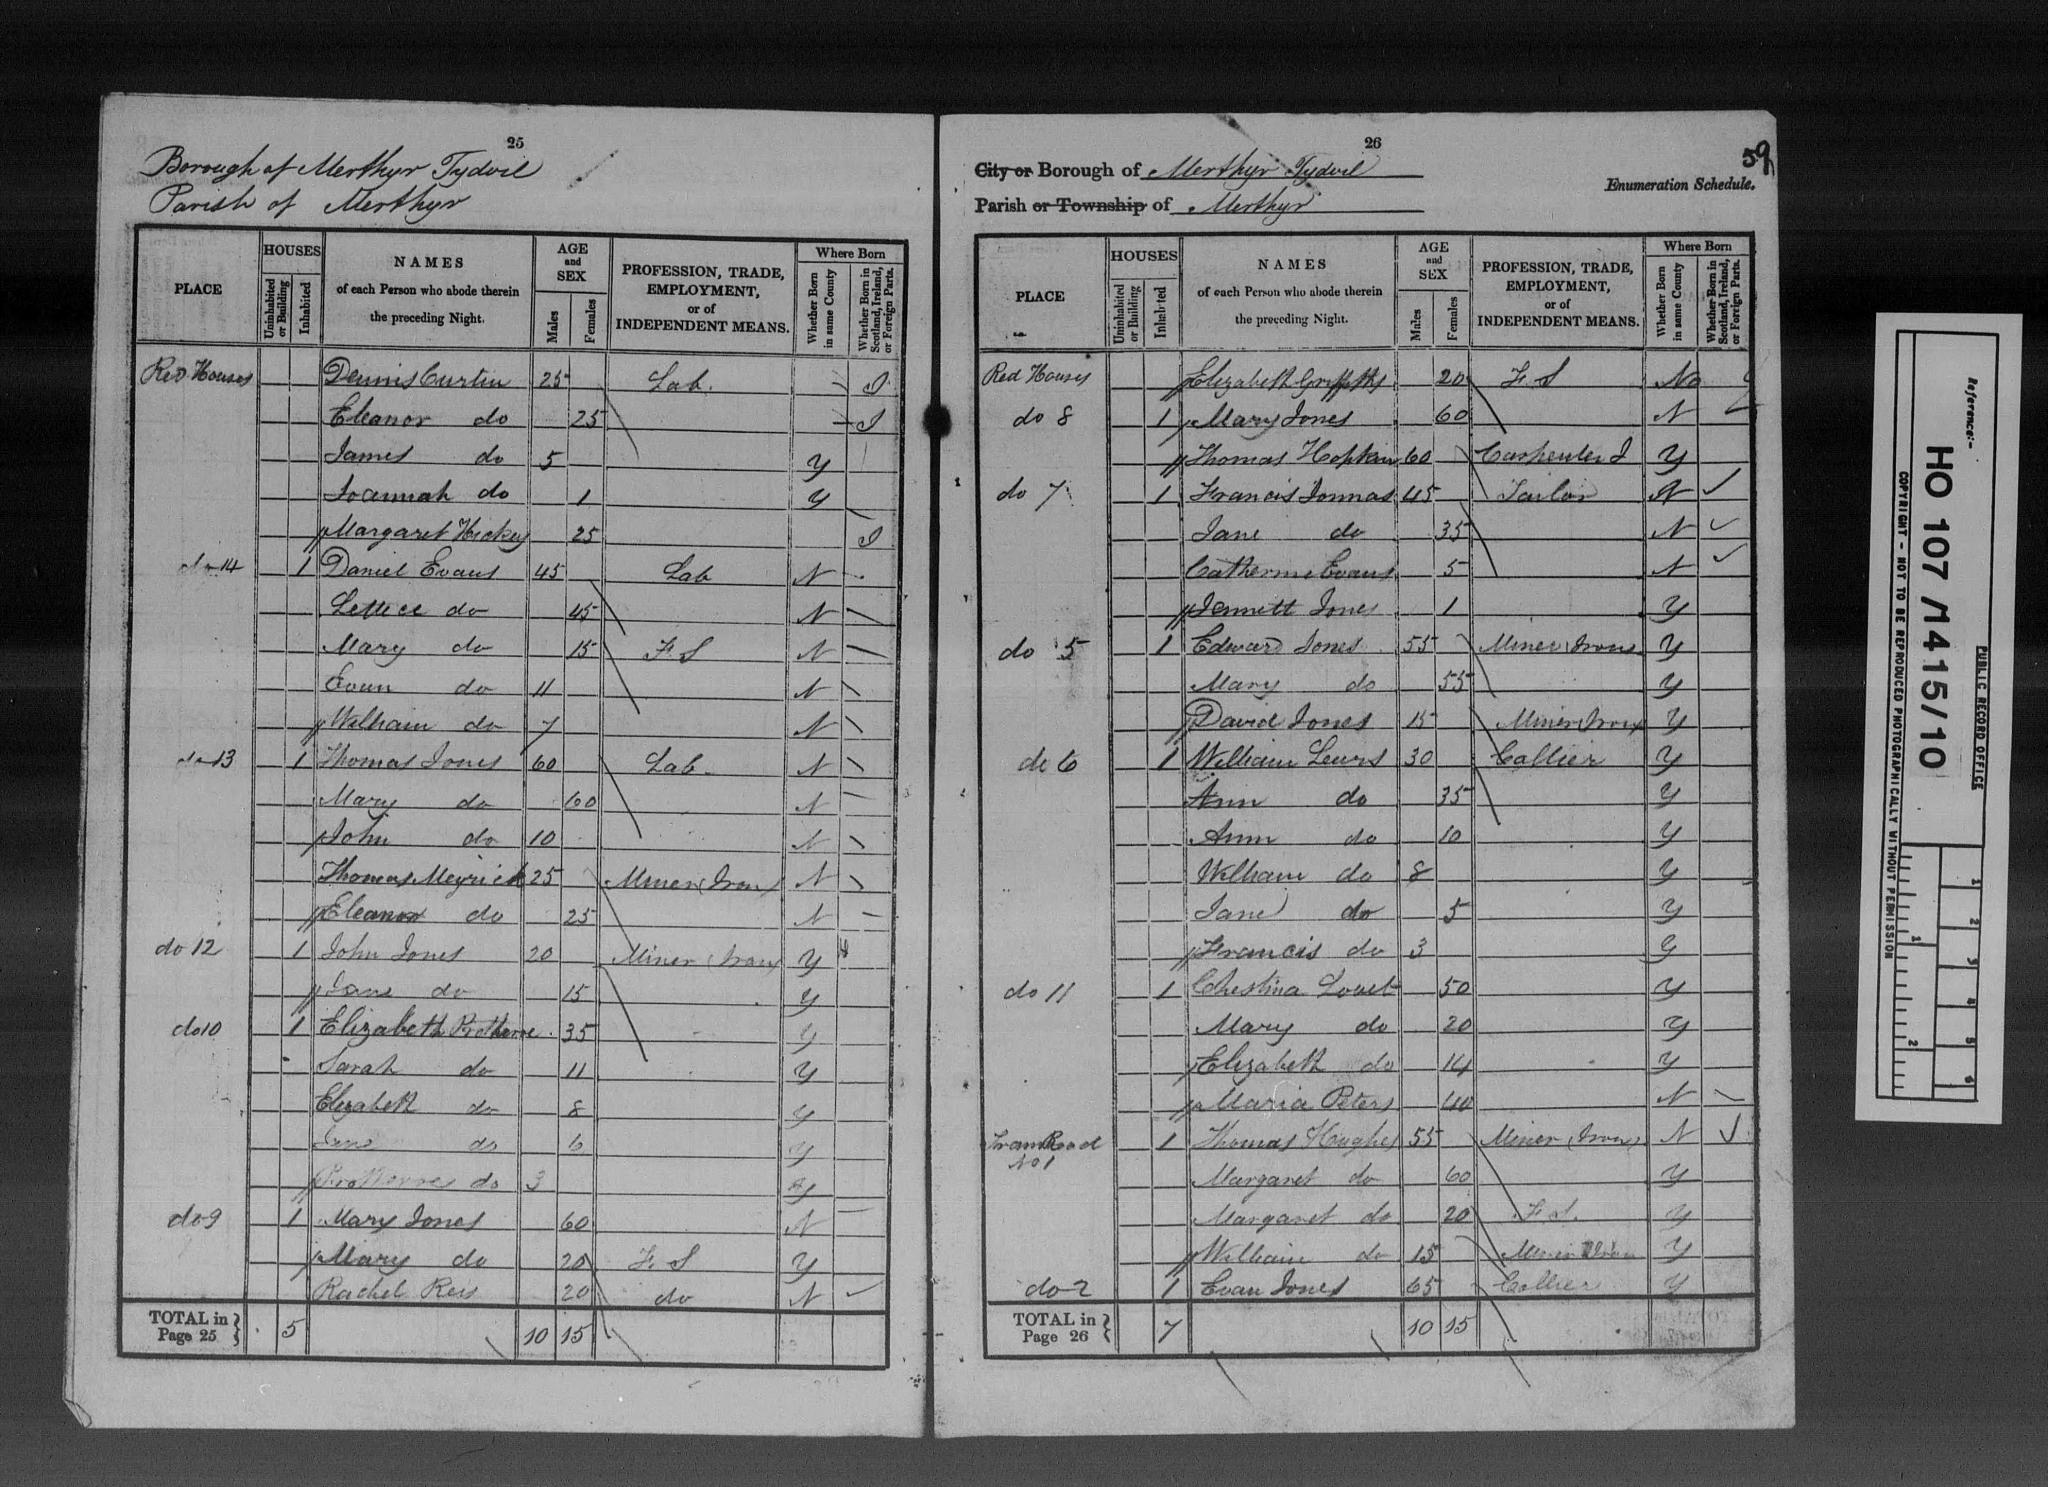 25
Borough of Merthyr Tydvil
Parish of Merthyr
PLACE HOUSES Uninhabited or Building Inhabited NAMES of each Person who abode therein the preceding Night. AGE and SEX Males Females PROFESSION, TRADE, EMPLOYMENT, or of INDEPENDENT MEANS. Where Born Whether Born in same County Whether Born in Scotland, Ireland, or Foreign Parts.
Red Houses Dennis Curtin 25 Lab. I
Eleanor do 25 I
James do 5 Y
Joannah do 1 Y
Margaret Hickey 25 I
do 14 1 Daniel Evans 45 Lab N
Lettice do 45 N
Mary do 15 F S N
Evan do 11 N
William do 7 N
do 13 1 Thomas Jones 60 Lab. N
Mary do 60 N
John do 10 N
Thomas Meyrick 25 Miner (Iron) N
Eleanor do 25 N
do 12 1 John Jones 20 Miner (Iron) Y
Jane do 15 Y
do 10 1 Elizabeth 35 Y
Sarah do 11 Y
Elizabeth do 8 Y
Jane do 6 Y
do 3 Y
do 9 1 Mary Jones 60 N
Mary do 20 F. S Y
Rachel Rees 20 do N
TOTAL in Page 25 5 10 15
26
59
City or Borough of Merthyr Tydvil
Enumeration Schedule.
Parish or Township of Merthyr
PLACE HOUSES Uninhabited or Building Inhabited NAMES of each Person who abode therein the preceding Night. AGE and SEX Males Females PROFESSION, TRADE, EMPLOYMENT, or of INDEPENDENT MEANS. Where Born Whether Born in same County Whether Born in Scotland, Ireland, or Foreign Parts.
Red Houses Elizabeth Griffiths 20 F. S No
do 8 1 Mary Jones 60 N
Thomas Hopkin 60 Carpenter J Y
do 7 1 Francis 45 Tailor N
Jane do 35 N
Catherine Evans 5 N
Jennett Jones 1 Y
do 5 1 Edward Jones 55 Miner (Iron) Y
Mary do 55 Y
David Jones 15 Miner (Iron) Y
do 6 1 William Lewis 30 Collier Y
Ann do 35 Y
Ann do 10 Y
William do 8 Y
Jane do 5 Y
Francis do 3 Y
do 11 1 Chestina 50 Y
Mary do 20 Y
Elizabeth do 14 Y
Maria Peters 40 N
Tram Road No 1 1 Thomas Hughes 55 Miner (Iron) N
Margaret do 60 Y
Margaret do 20 F. S. Y
William do 15 Miner Iron Y
do 2 1 Evan Jones 65 Collier Y
TOTAL in Page 26 7 10 15
PUBLIC RECORD OFFICE
Reference:-
HO 107/1415/10
COPYRIGHT - NOT TO BE REPRODUCED PHOTOGRAPHICALLY WITHOUT PERMISSION
1 2 3 4 5 6
1 2